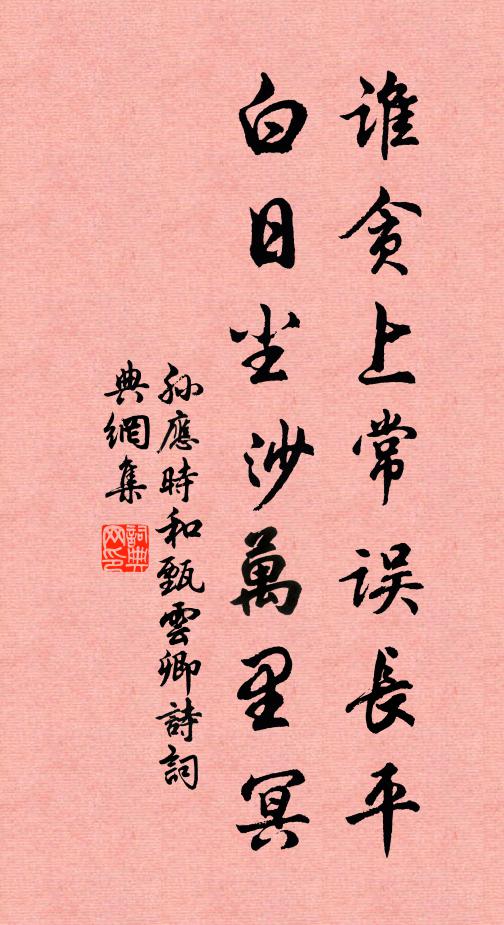 谁貪上常误長平
白日尘沙萬里冥
孫應時和甄雲卿詩詞
典網集
詞典网印